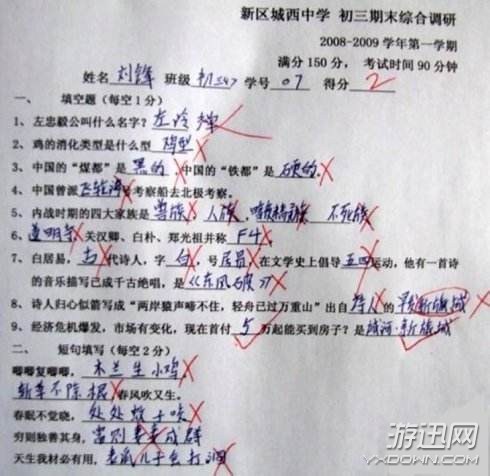 新区城西中学 初三期末综合调研
2008-2009学年第一学期
满分150分， 考试时间90分钟
姓名 刘锋 班级 初三(4) 学号 07 得分 2
一、 填空题（每空1分）
1、左忠毅公叫什么名字？左冷禅
2、鸡的消化类型是什么型 陶型
3、中国的“煤都”是 黑的，中国的“铁都”是 硬的。
4、中国曾派 飞轮海 号考察船去北极考察。
5、内战时期的四大家族是 兽族、人族、暗夜精灵族、不死族
6、道明寺、关汉卿、白朴、郑光祖并称 F4。
7、白居易，古代诗人，字 白，号 居易 在文学史上倡导 五四 运动，他有一首诗
的音乐描写已成千古绝唱，是《东风破》
8、诗人归心似箭写成“两岸猿声啼不住，轻舟已过万重山”出自 诗人 的 新旗城
9、经济危机爆发，市场有变化，现在首付 5 万起能买到房子？是 城河·新旗城
二、 短句填写（每空2分）
唧唧复唧唧，木兰生小鸡。
斩草不除根，春风吹又生。
春眠不觉晓，处处蚊子咬。
穷则独善其身，富则妻妾成群
天生我材必有用，老鼠儿子会打洞
游迅网
YXDOWN.COM